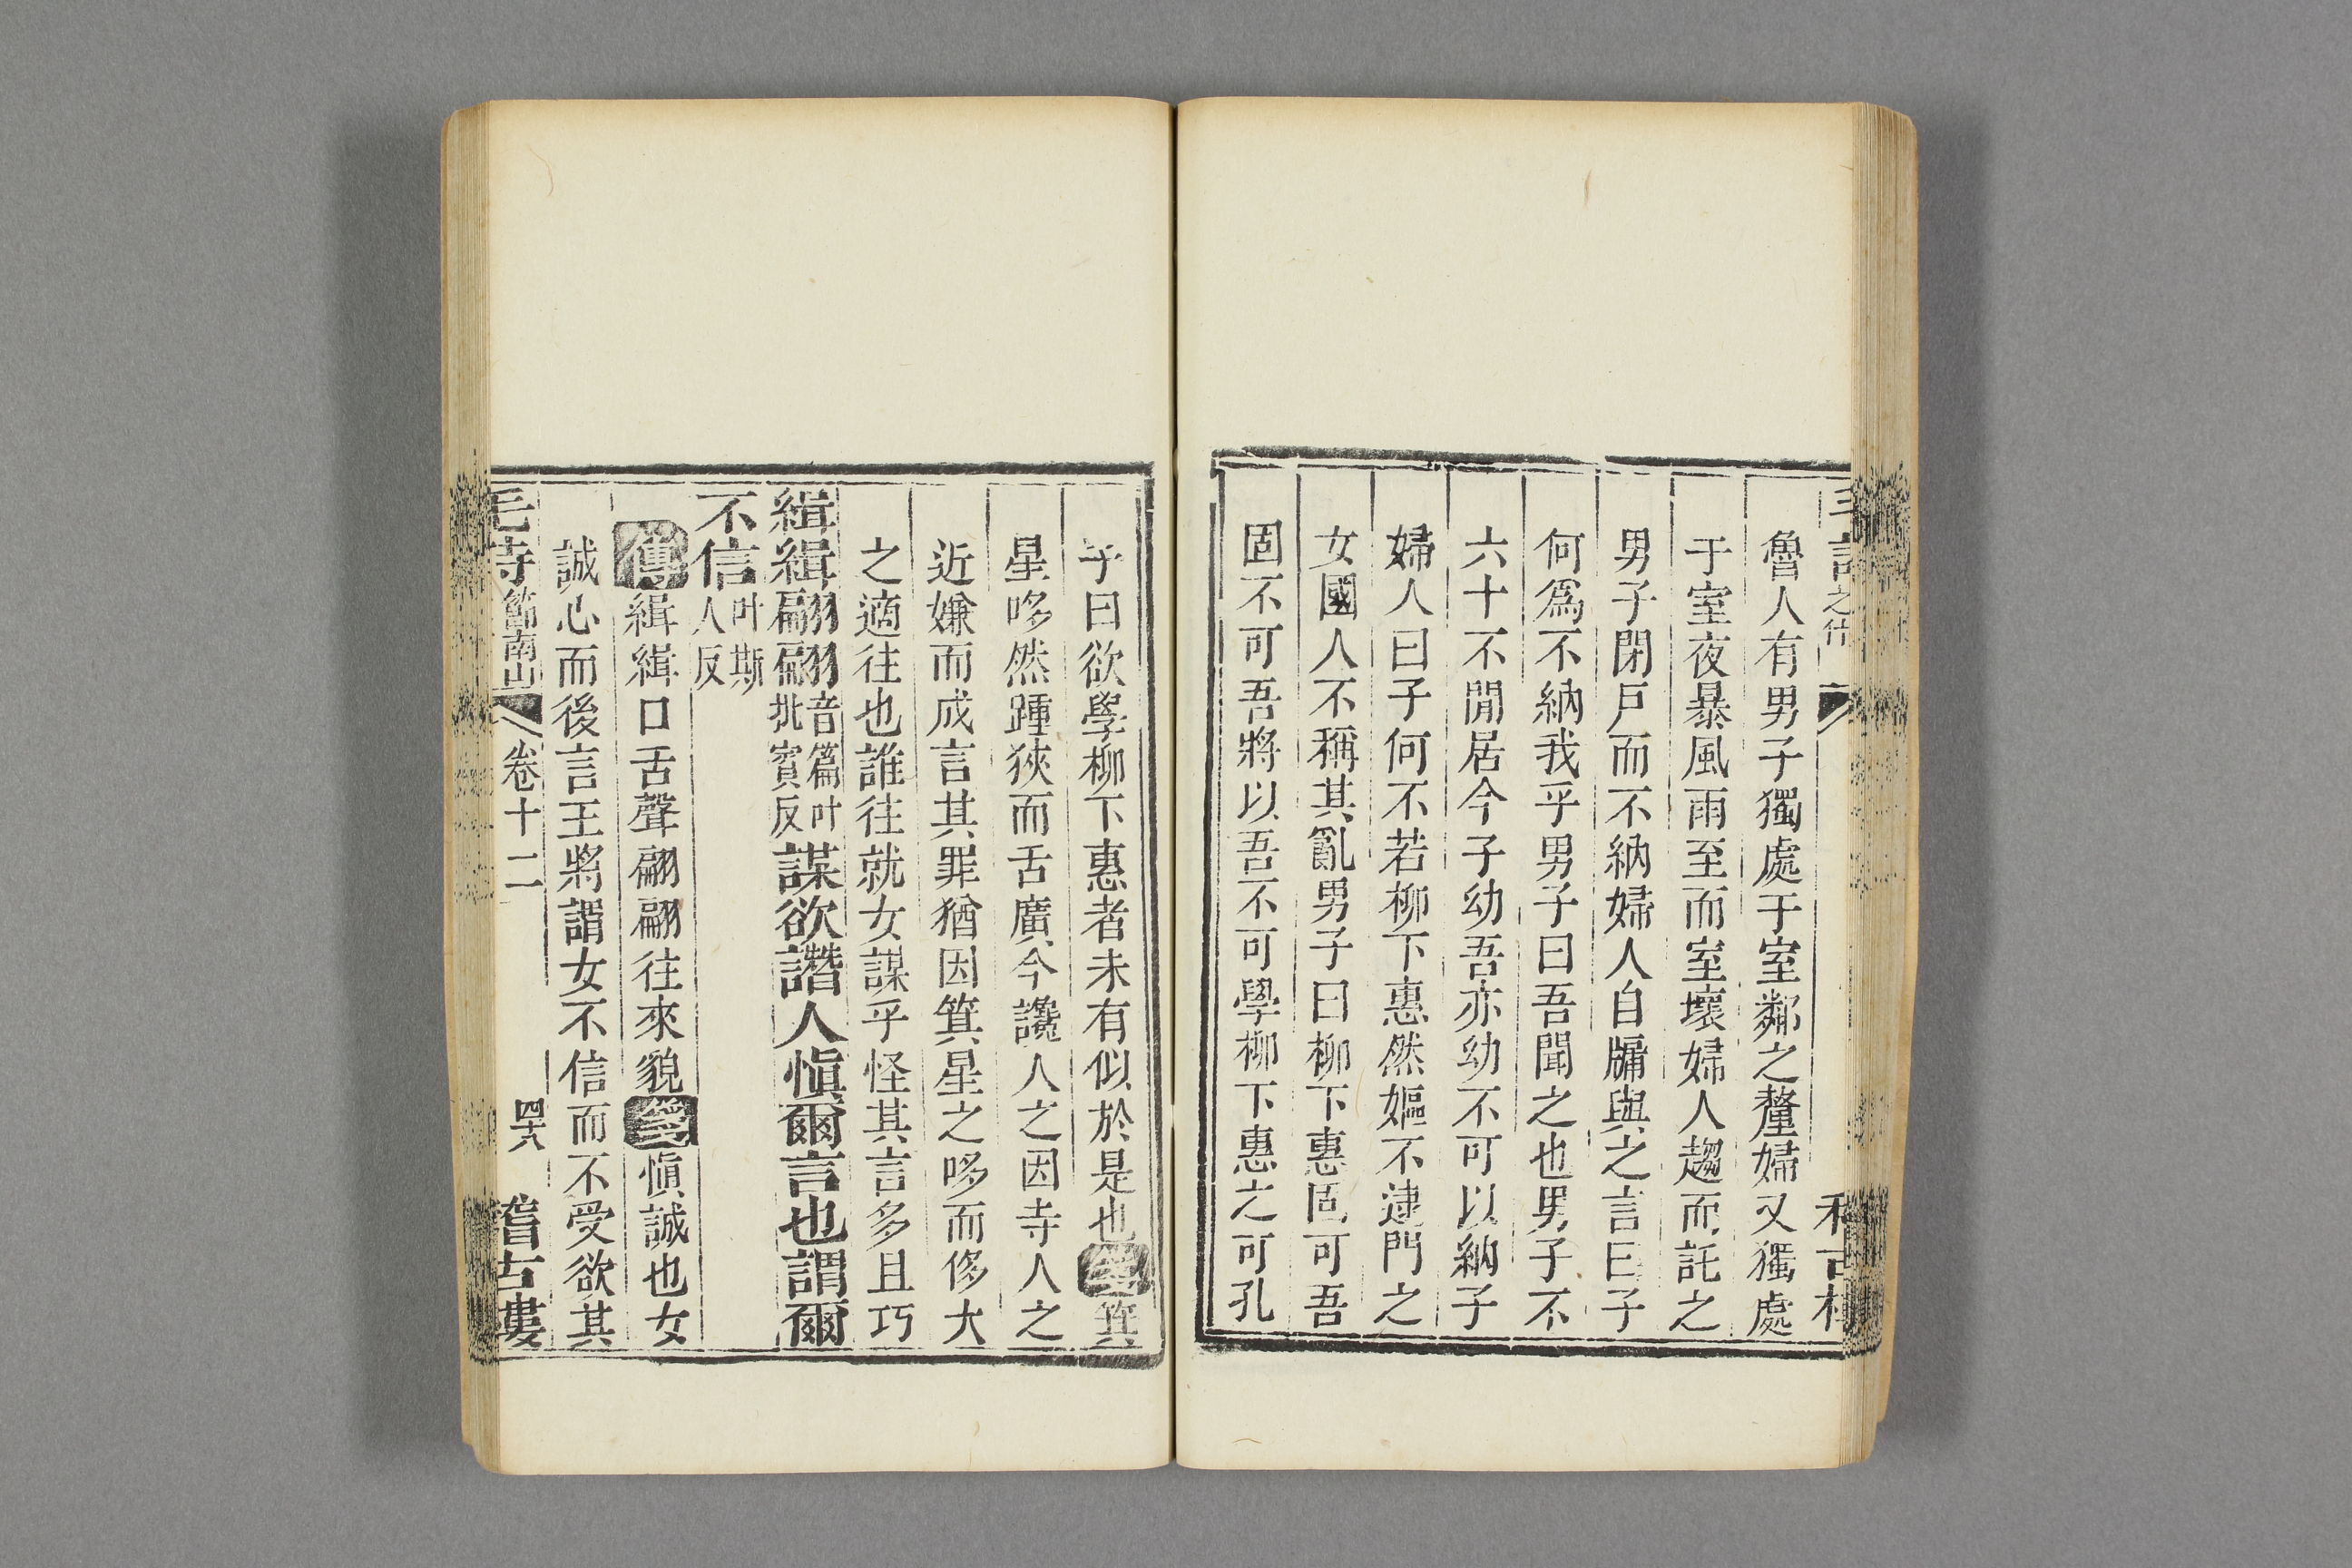 魯人有男子獨處于室鄰之釐婦又獨處
于室夜暴風雨至而室壞婦人趨而託之
男子閉戸而不納婦人自牖與之言曰子
何爲不納我乎男子曰吾聞之也男子不
六十不閒居今子幼吾亦幼不可以納子
婦人曰子何不若柳下惠然嫗不逮門之
女國人不稱其亂男子曰柳下惠固可吾
固不可吾將以吾不可學柳下惠之可孔
子曰欲學柳下惠者未有似於是也箋箕
星哆然踵狹而舌廣今讒人之因寺人之
近嫌而成言其罪猶因箕星之哆而侈大
之適往也誰往就女謀乎怪其言多且巧
緝緝翩翩音篇叶批賓反謀欲譖人愼爾言也謂爾
不信叶斯人反
傳緝緝口舌聲翩翩往來貌箋愼誠也女
誠心而後言王將謂女不信而不受欲其
毛詩節南山 卷十二 四十八 稽古樓